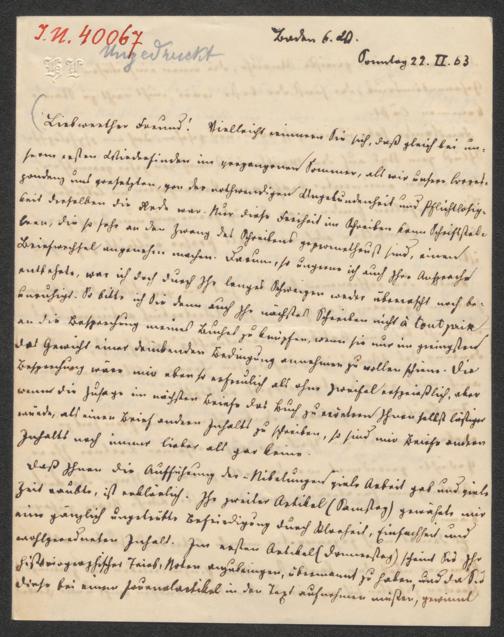 I.N. 40067
Ungedruckt
Baden 6.
Sonntag 22. II. 63
Liebwerther Freund! Vielleicht erinnern Sie sich, daß gleich bei un-
serm ersten Wiederfinden im vergangenen Sommer, als wir unsere Corres-
pondenz uns zusetzten, von der nothwendigen Ungebundenheit und Pflichtlosig-
keit derselben die Rede war. Nur diese Freiheit im Schreiben kann Schriftstel-
lern, die so sehr an den Zwang des Schreibens geprometheust sind, einen
Briefwechsel angenehm machen. Darum, so ungern ich auch Ihre Ansprache
entbehrte, war ich doch durch Ihr langes Schweigen weder überrascht noch be-
unruhigt. So bitte ich Sie denn auch Ihr nächstes Schreiben nicht à tout prix
an die Besprechung meines Buches zu knüpfen, wenn sie nur im geringsten
das Gewicht einer bindenden Bedingung annehmen zu wollen schiene. Die
Besprechung wäre mir ebenso erfreulich als ohne Zweifel ersprießlich, aber
wenn die Zusage im nächsten Briefe das Buch zu erörtern Ihnen selbst lästiger
würde, als einen Brief andern Inhalts zu schreiben, so sind mir Briefe andern
Inhalts noch immer lieber als gar keine.
Daß Ihnen die Aufführung der Nibelungen viele Arbeit gab und viele
Zeit raubte, ist erklärlich. Ihr zweiter Artikel (Samstag) gewährte mir
eine gänzlich ungetrübte Befriedigung durch Klarheit, Einfachheit und
wohlgeordneten Inhalt. Im ersten Artikel (Donnerstag) schien Sie Ihr
historiographischer Trieb, Noten anzubringen, übermannt zu haben, und da Sie
diese bei einem Journalartikel in den Text aufnehmen mußten, gewinnt